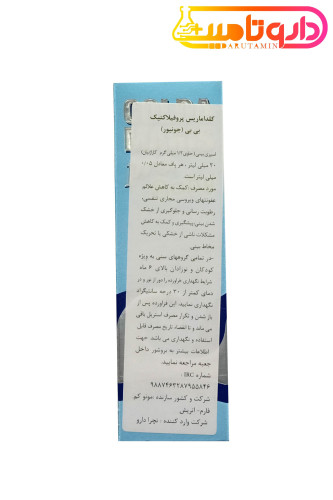 داروتامین
DARUTAMIN
کلداماریس پروفیلاکتیک
بی بی (جونیور)
اسپری بینی (حاوی ۱/۲ میلی گرم کاراژینان)
۲۰ میلی لیتر، هر پاف معادل ۰/۰۵
میلی لیتر است.
مورد مصرف: کمک به کاهش علائم
عفونتهای ویروسی مجاری تنفسی،
رطوبت رسانی و جلوگیری از خشک
شدن بینی، پیشگیری و کمک به کاهش
مشکلات ناشی از خشکی یا تحریک
مخاط بینی
-در تمامی گروههای سنی به ویژه
کودکان و نوزادان بالای ۶ ماه
شرایط نگهداری: فرآورده را دور از نور و در
دمای کمتر از ۳۰ درجه سانتیگراد
نگهداری نمایید. این فرآورده پس از
باز شدن و تکرار مصرف استریل باقی
می ماند و تا انقضاء تاریخ مصرف قابل
استفاده و نگهداری می باشد. جهت
اطلاعات بیشتر به بروشور داخل
جعبه مراجعه نمایید.
شماره IRC:
۹۸۸۷۴۶۳۲۸۷۹۵۵۸۴۶
شرکت و کشور سازنده: مونو کم
فارم- اتریش
شرکت وارد کننده: نچرا دارو